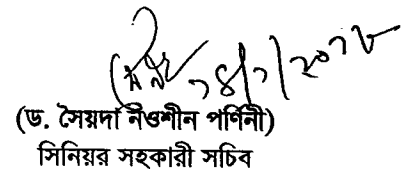 ২৪/১/২০১৮
(ড. সৈয়দা নওশীন পর্ণিনী)
সিনিয়র সহকারী সচিব